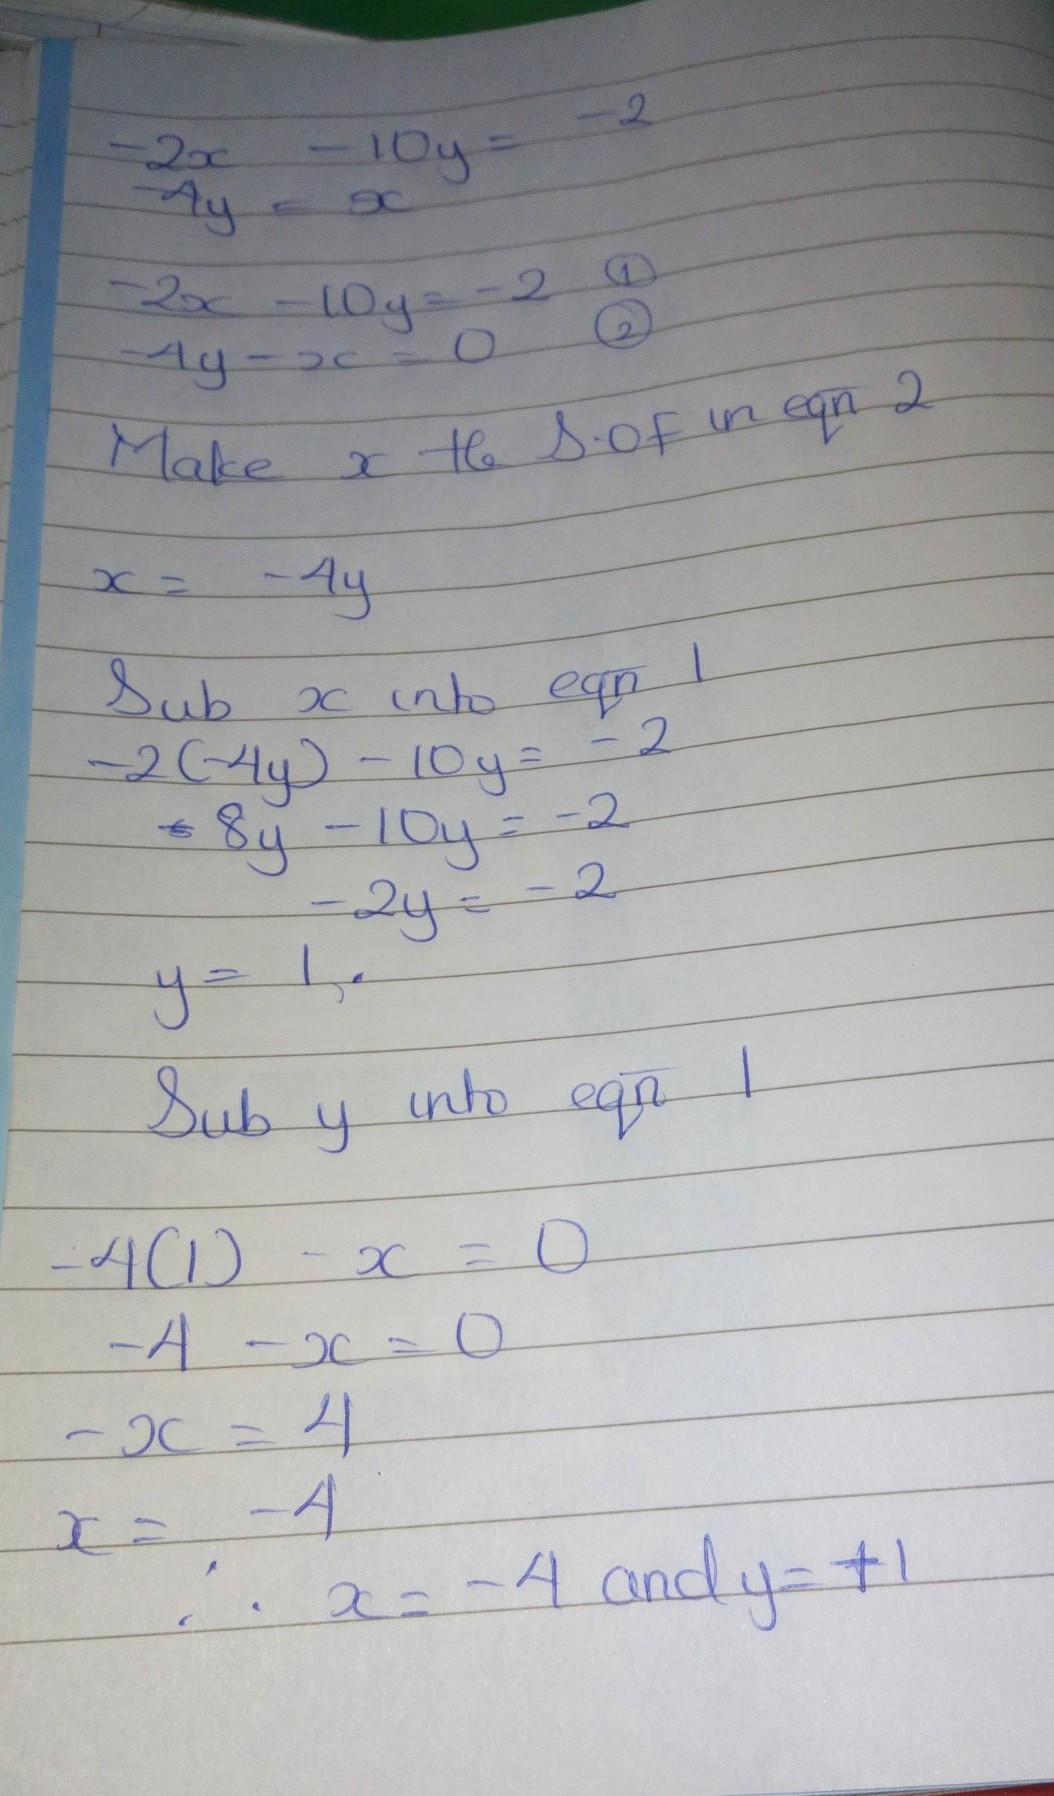 -2x -10y = -2
-4y = x
-2x -10y = -2 ①
-4y - x = 0 ②
Make x the S.OF in eqn 2
x = -4y
Sub x into eqn 1
-2(-4y) - 10y = -2
8y - 10y = -2
-2y = -2
y = 1
Sub y into eqn 1
-4(1) - x = 0
-4 - x = 0
-x = 4
x = -4
∴ x = -4 and y = +1